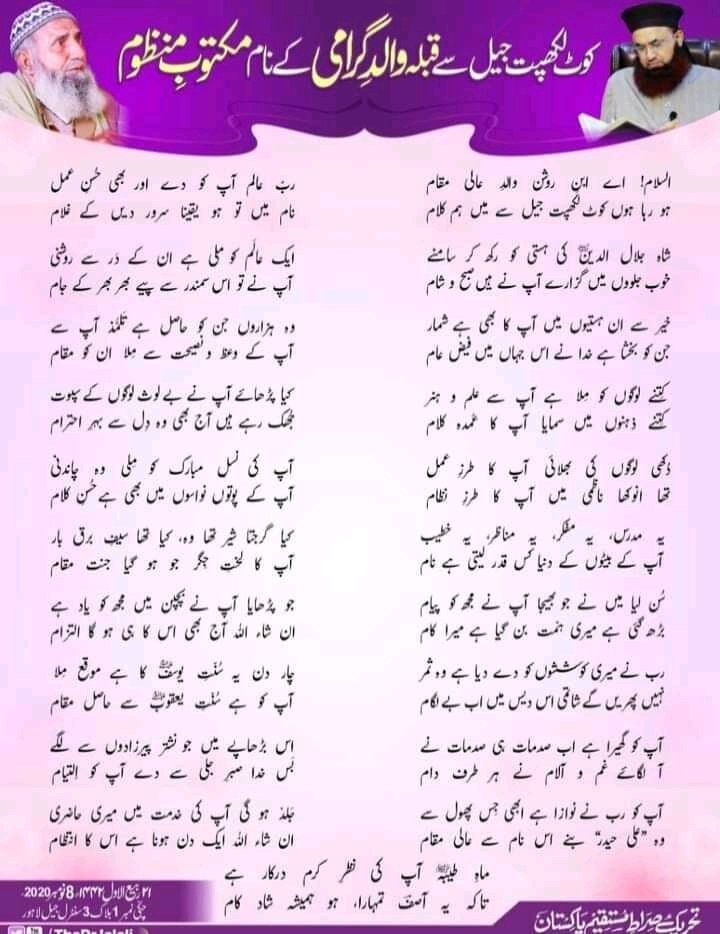 کوٹ لکھپت جیل سے قبلہ والدِ گرامی کے نام مکتوبِ منظوم
السلام! اے ابن روشن والدِ عالی مقام
ہو رہا ہوں کوٹ لکھپت جیل سے میں ہم کلام
ربّ عالم آپ کو دے اور بھی حُسن عمل
نام میں تو ہو یقینا سرور دیں کے غلام
شاہ جلال الدینؒ کی ہستی کو رکھ کر سامنے
خوب جلوؤں میں گزارے آپ نے ہیں صبح و شام
ایک عالَم کو ملی ہے ان کے دَر سے روشنی
آپ نے تو اس سمندر سے پیے بھر بھر کے جام
خیر سے ان ہستیوں میں آپ کا بھی ہے شمار
جن کو بخشا ہے خدا نے اس جہاں میں فیضِ عام
وہ ہزاروں جن کو حاصل ہے تلمّذ آپ سے
آپ کے وعظ و نصیحت سے مِلا ان کو مقام
کتنے لوگوں کو مِلا ہے آپ سے علم و ہنر
کتنے ذہنوں میں سمایا آپ کا عُمدہ کلام
کیا پڑھائے آپ نے بے لوث لوگوں کے سپوت
جُھک رہے ہیں آج بھی وہ دِل سے بہر احترام
دُکھی لوگوں کی بھلائی آپ کا طرزِ عمل
تھا انوکھا ناظمی میں آپ کا طرزِ نظام
آپ کی نسل مبارک کو مِلی وہ چاندنی
آپ کے پوتوں نواسوں میں بھی ہے حُسنِ کلام
یہ مدرس، یہ مفکر، یہ مناظر، یہ خطیب
آپ کے بیٹوں کے دنیا کس قدر لیتی ہے نام
کیا گرجتا شیر تھا وہ، کیا تھا سیفِ برق بار
آپ کا لختِ جگر جو ہو گیا جنت مقام
سُن لیا میں نے جو بھیجا آپ نے مجھ کو پیام
بڑھ گئی ہے میری ہمّت بن گیا ہے میرا کام
جو پڑھایا آپ نے بچپن میں مجھ کو یاد ہے
ان شاء اللہ آج بھی اس کا ہی ہو گا التزام
رب نے میری کوششوں کو دے دیا ہے وہ ثمر
نہیں پھریں گے شاتمی اس دیس میں اب بے لگام
چار دن یہ سُنّتِ یوسفؑ کا ہے موقع مِلا
آپ کو ہے سُنّتِ یعقوبؑ سے حاصل مقام
آپ کو گھیرا ہے اب صدمات ہی صدمات نے
آ لگائے غم و آلام نے ہر طرف دام
اس بڑھاپے میں جو نشتر پیرزادوں سے لگے
بَس خدا صبرِ جلی سے دے آپ کو اِلتیام
آپ کو رب نے نوازا ہے ابھی جس پھول سے
وہ ”علی حیدر“ بنے اس نام سے عالی مقام
جلد ہو گی آپ کی خدمت میں میری حاضری
ان شاء اللہ ایک دن ہونا ہے اس کا انتظام
ماہِ طیبہؐ آپ کی نظرِ کرم درکار ہے
تاکہ یہ آصفؔ تمہارا، ہو ہمیشہ شاد کام
۲۱ ربیع الاول ۱۴۴۲ھ، 8 نومبر 2020ء
چکی نمبر 1 بلاک 3 سنٹرل جیل لاہور
تحریک صراط مستقیم پاکستان